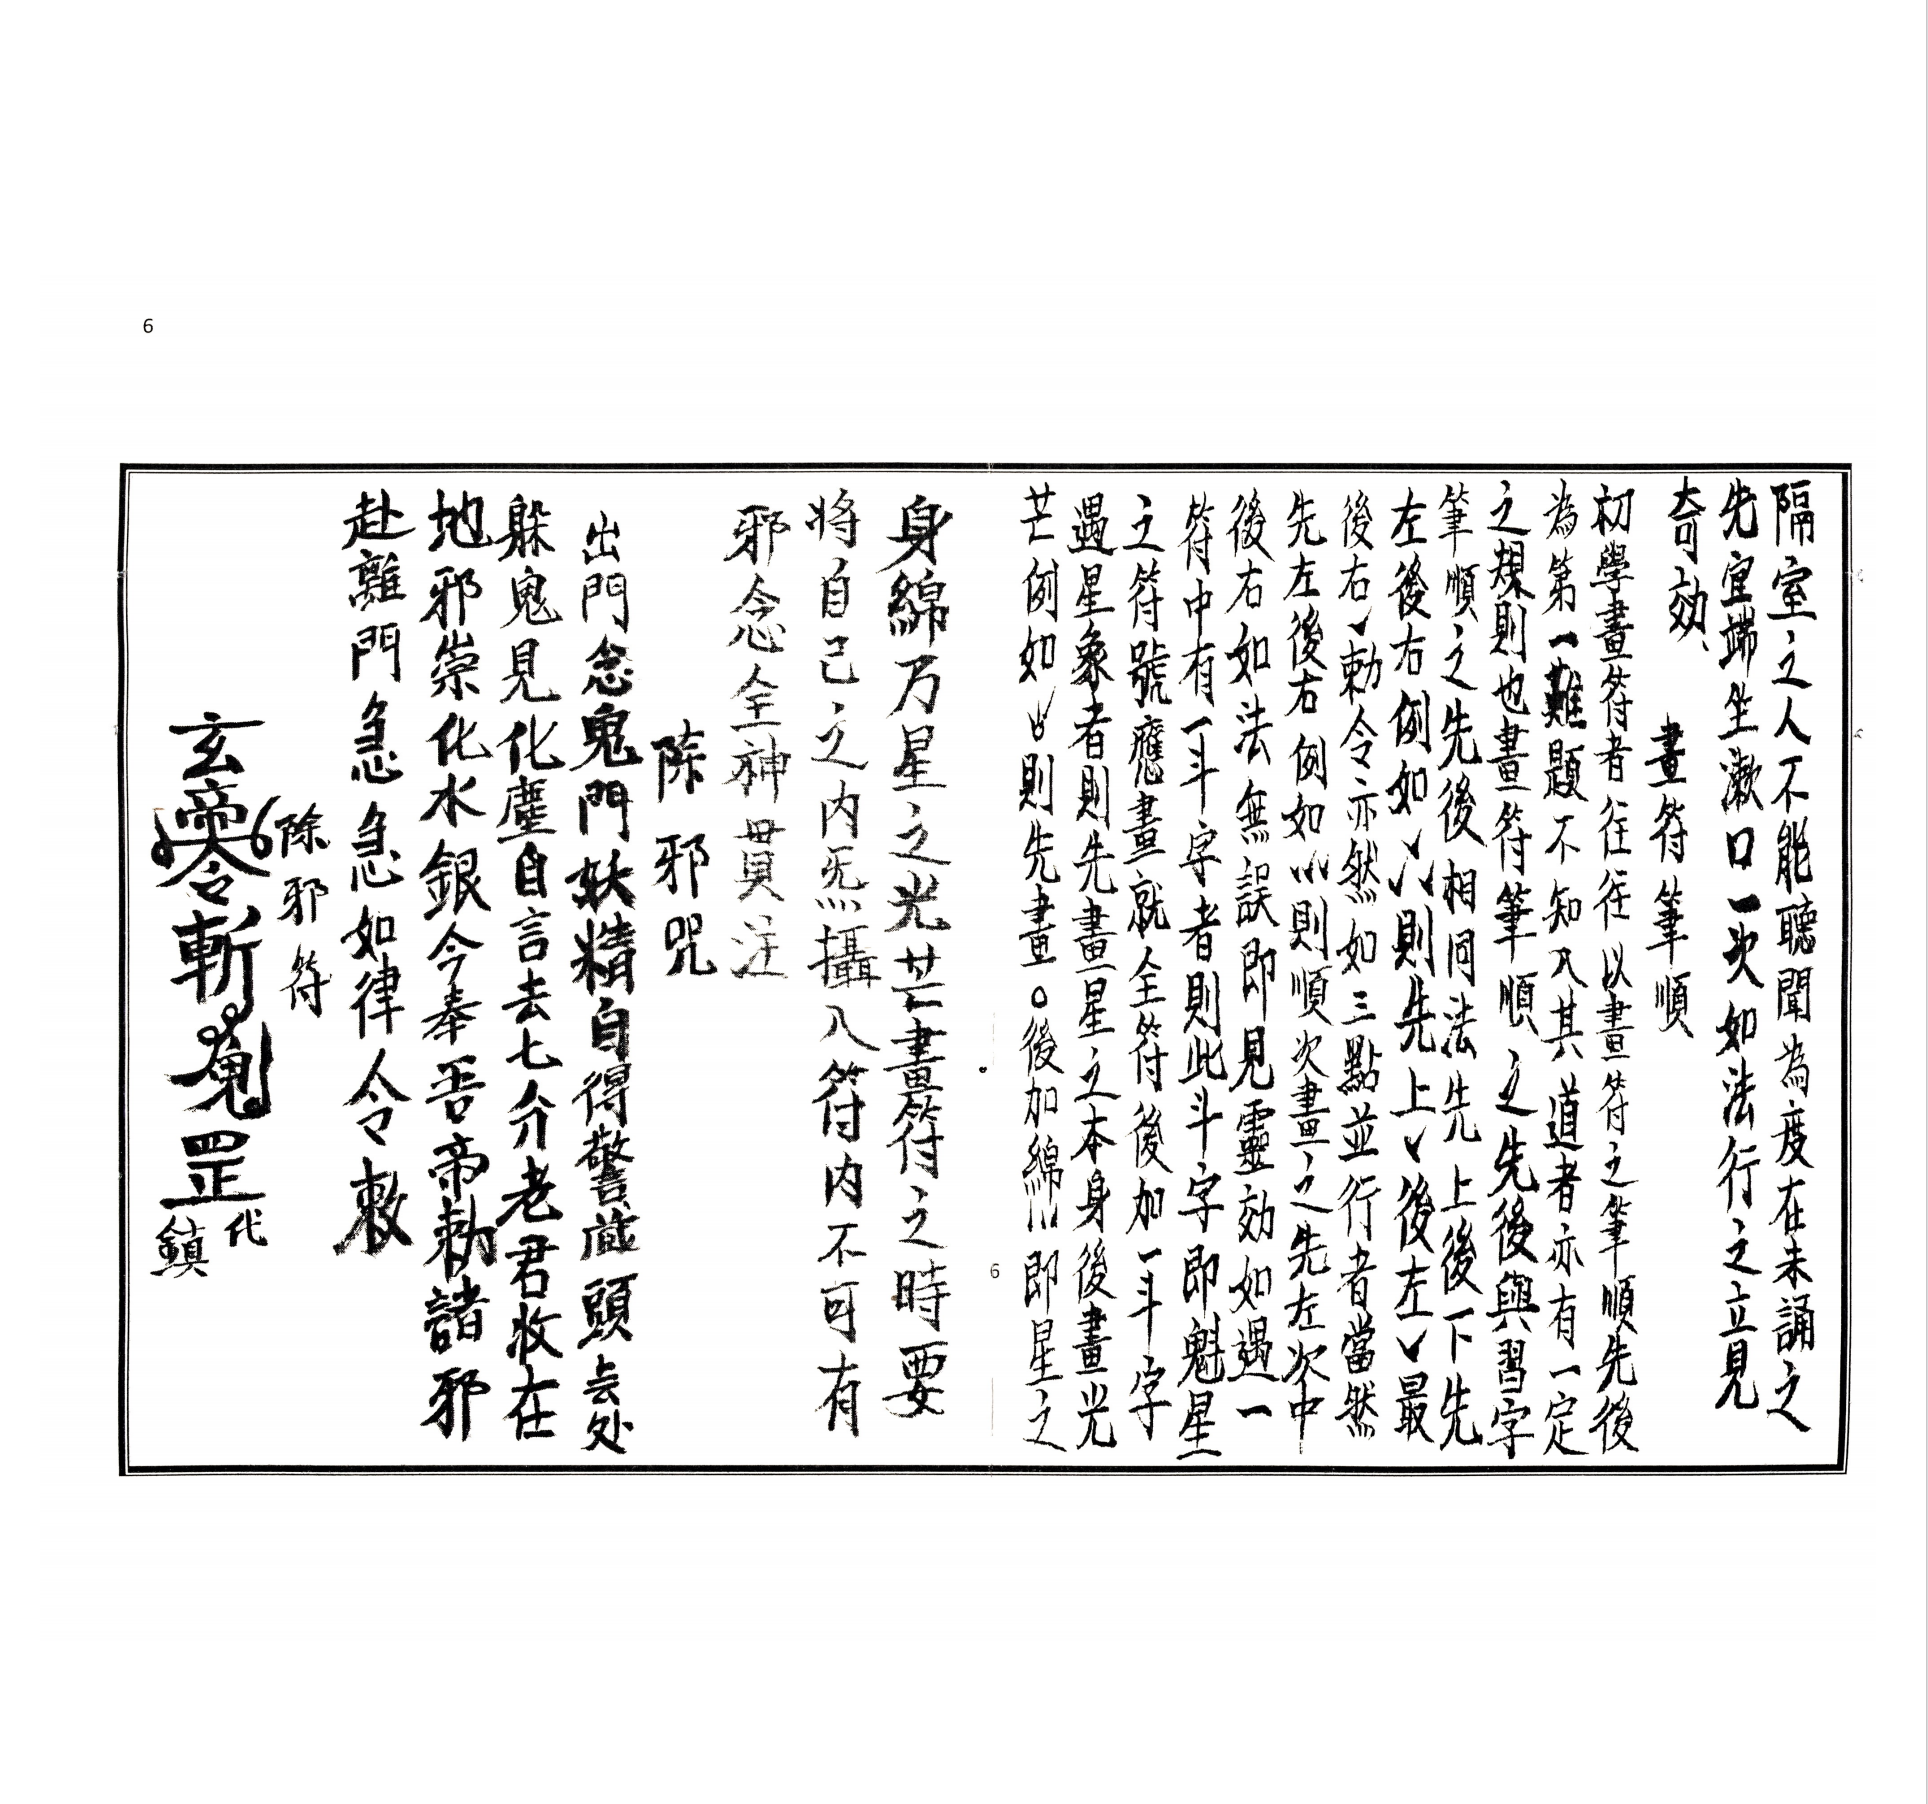 6
隔室之人不能聽聞為度在未誦之
先宜端坐漱口一次如法行之立見
奇効
畫符筆順
初學畫符者往往以畫符之筆順先後
為第一難題不知入其道者亦有一定
之規則也畫符筆順之先後與習字
筆順之先後相同法先上後下先
左後右例如 則先上 後左 最
後右 勅令亦然如三點並行者當然
先左後右例如 則順次畫之先左次中
後右如法無誤即見靈効如遇一
符中有一斗字者則此斗字即魁星
之符號應畫就全符後加一斗字
遇星象者則先畫星之本身後畫光
芒例如 則先畫〇後加綿 即星之
身綿乃星之光芒畫符之時要
將自己之內炁攝入符内不可有
邪念全神貫注
除邪咒
出門念鬼門妖精自得警藏頭去处
躲鬼見化塵自言去七介老君收在
地邪祟化水銀今奉吾帝勅諸邪
赴離門急急如律令敕
除邪符
玄帝令斬鬼罡
代
鎮
6